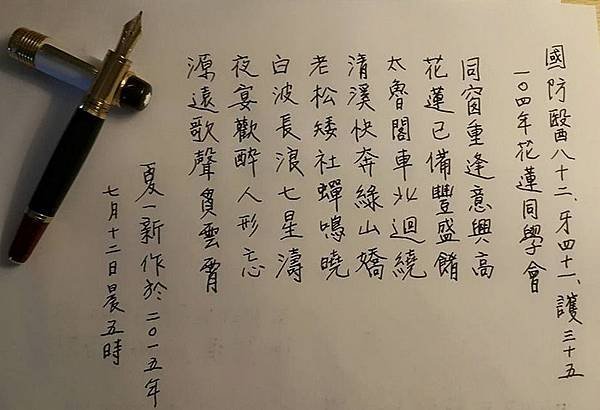 國防醫八十二、牙四十一、護三十五
一０四年花蓮同學會
同窗重逢意興高
花蓮已備豐盛餚
太魯閣車北迴繞
清溪快奔綠山嬌
老松矮社蟬鳴曉
白波長浪七星濤
夜宴歡醉人形忘
源遠歌聲貫雲霄
夏一新作於二０一五年
七月十二日晨五時